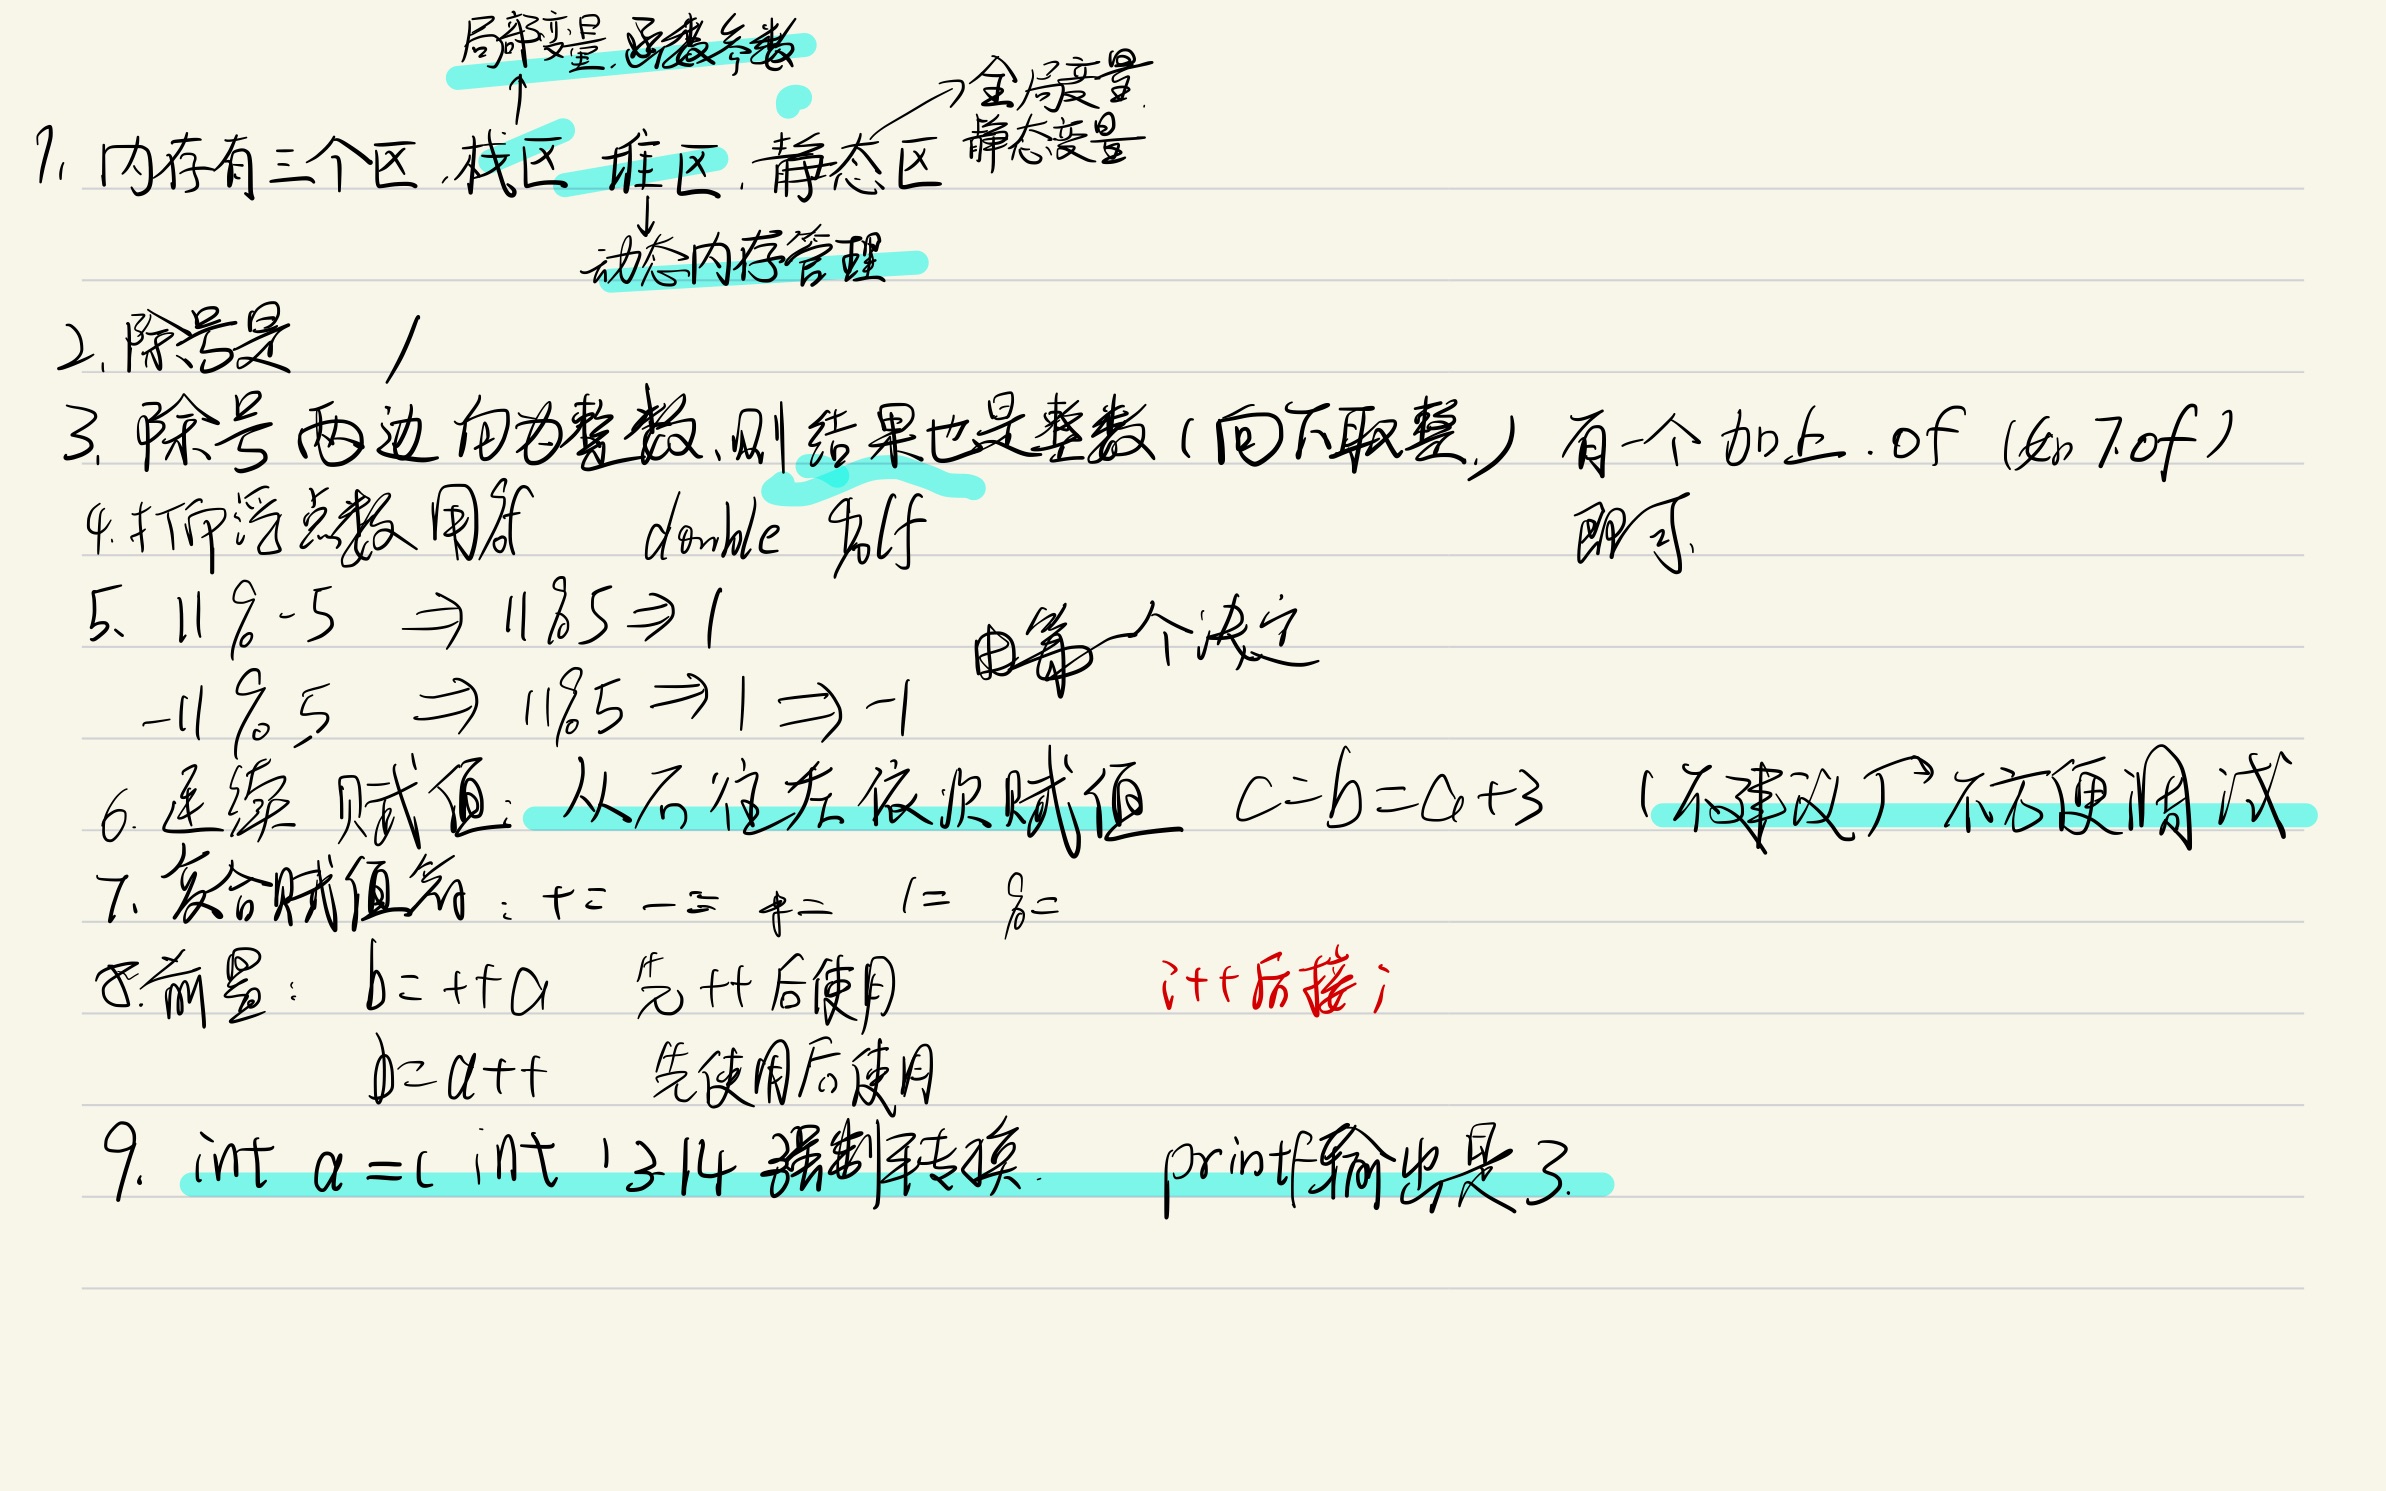 局部变量.函数参数
全局变量.
静态变量
1. 内存有三个区.栈区 堆区.静态区
动态内存管理
2.除号是 /
3.除号两边均为整数.则结果也是整数(向下取整.) 有一个加上.0f (如7.0f)
即可.
4.打印浮点数用%f double %lf
5. 11%-5 ⇒ 11%5⇒1
由第一个决定
-11%5 ⇒ 11%5⇒1⇒-1
6.连续赋值: 从右往左依次赋值 c=b=a+3 (不建议)→不方便调试
7.复合赋值符: += -= *= /= %=
8.前置: b=++a 先++后使用 i++后接;
b=a++ 先使用后使用
9. int a=(int)3.14 强制转换. printf输出是3.